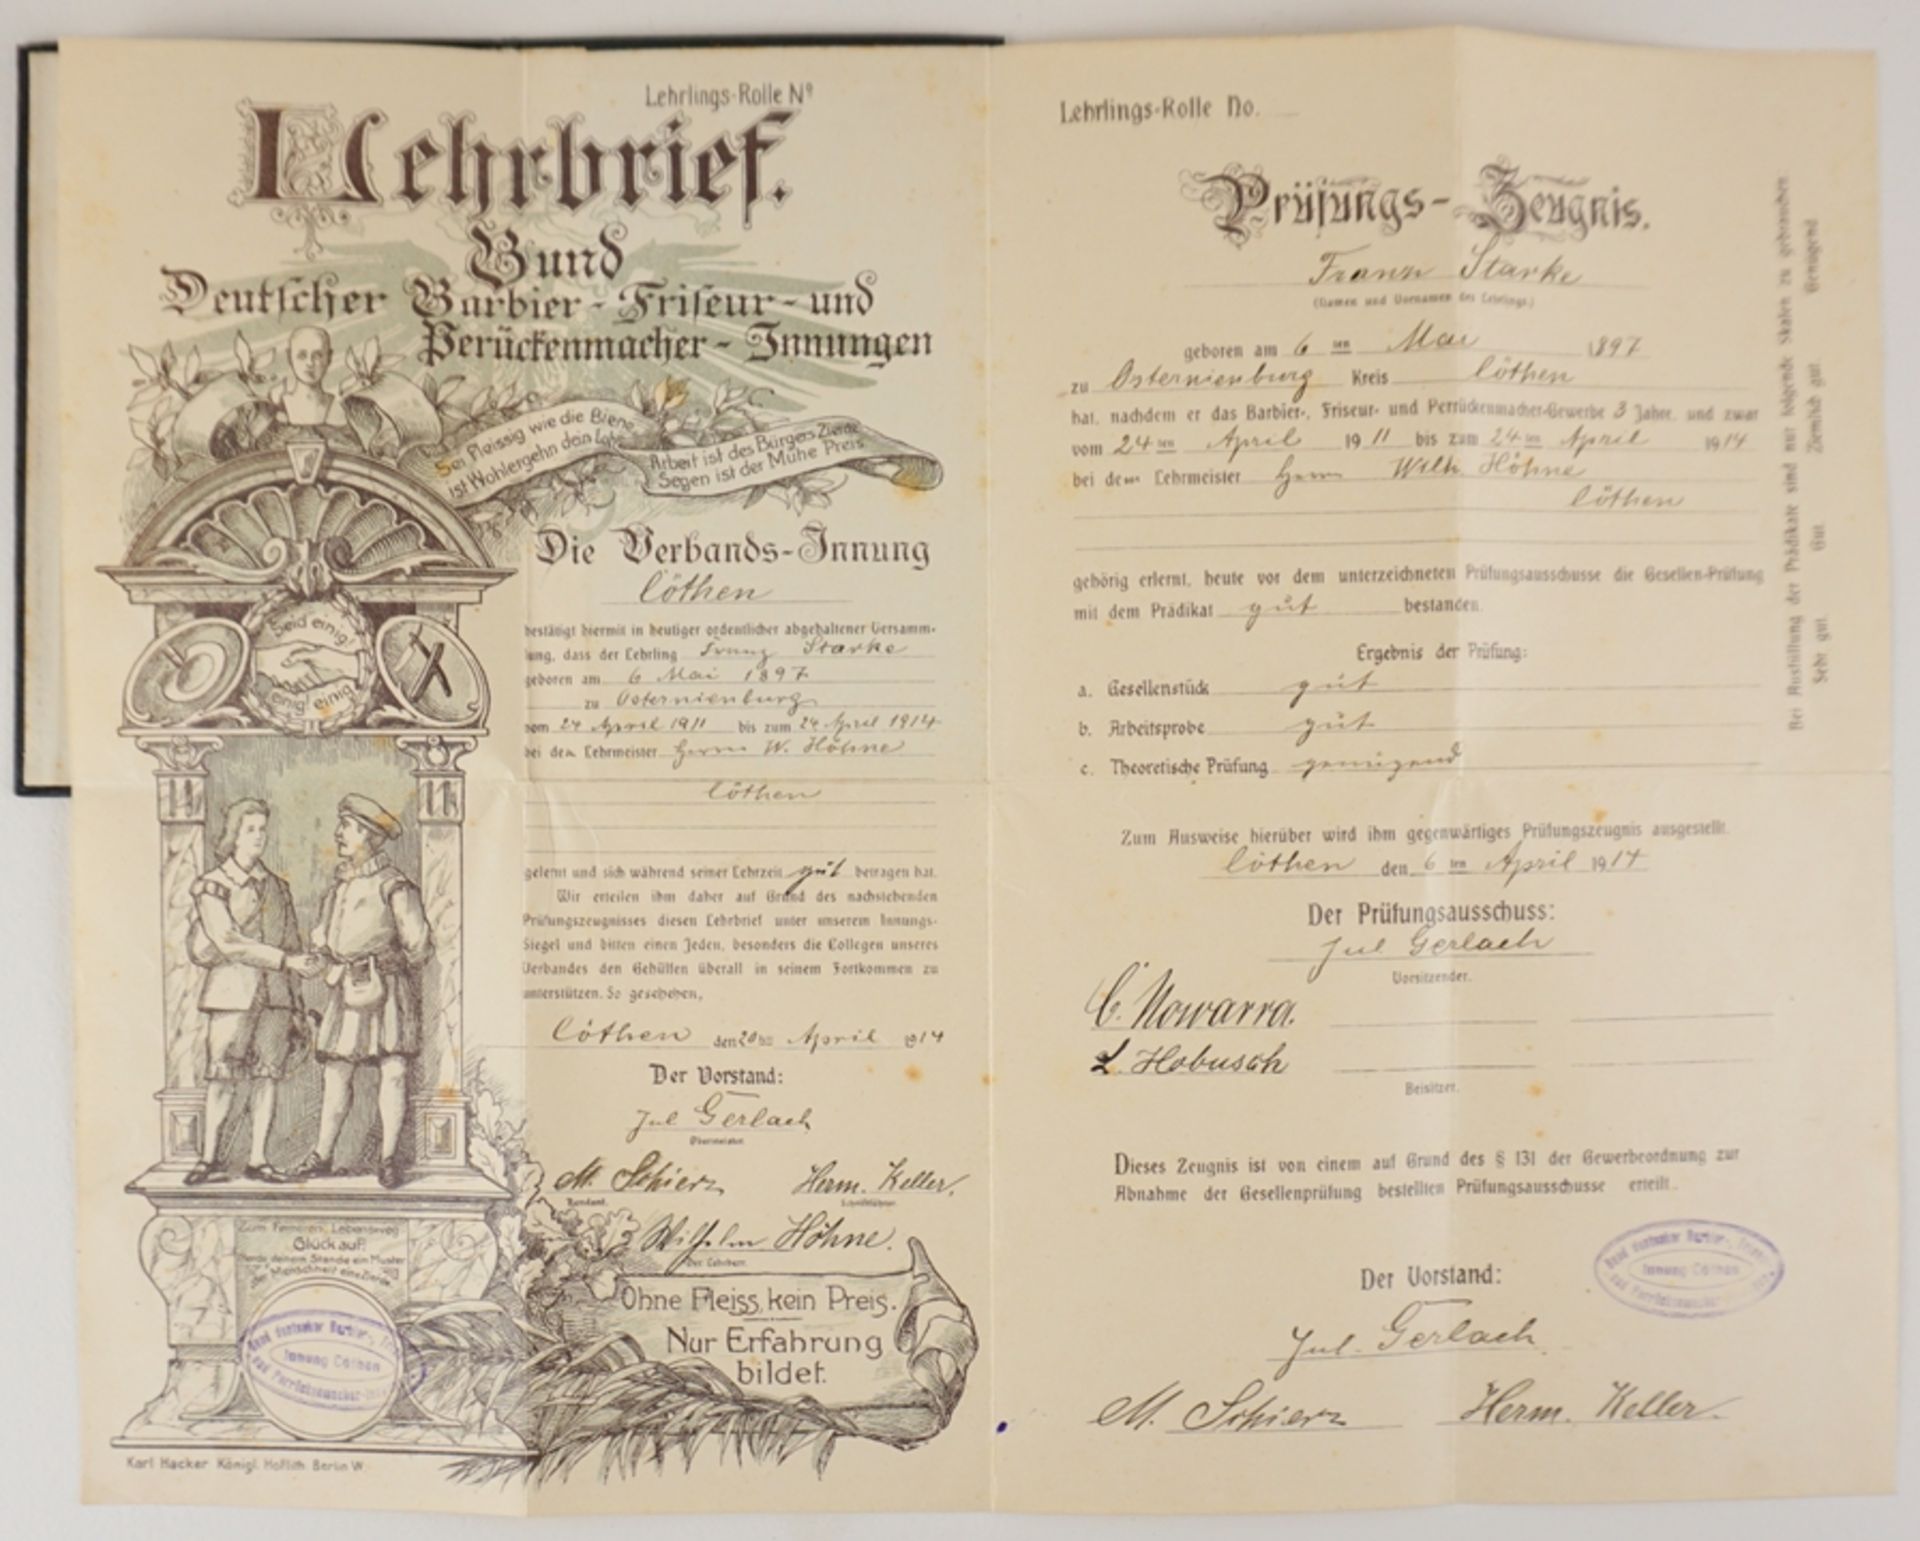 Lehrlings-Rolle Nº
Lehrbrief.
Bund
Deutscher Barbier-Friseur-und
Perückenmacher-Innungen
Sei Fleissig wie die Biene
ist Wohlergehn dein Lohn
Arbeit ist des Bürgers Zierde
Segen ist der Mühe Preis
Die Verbands-Innung
Cöthen
bestätigt hiermit in heutiger ordentlicher abgehaltener Versamm-
lung, dass der Lehrling Franz Starke
geboren am 6 Mai 1897
zu Osternienburg
vom 24 April 1911 bis zum 24 April 1914
bei dem Lehrmeister Herrn W. Höhne
Cöthen
gelernt und sich während seiner Lehrzeit gut betragen hat.
Wir erteilen ihm daher auf Grund des nachstehenden
Prüfungszeugnisses diesen Lehrbrief unter unserem Innungs-
Siegel und bitten einen Jeden, besonders die Collegen unseres
Verbandes den Gehülfen überall in seinem Fortkommen zu
unterstützen. So geschehen,
Cöthen den 20ten April 1914
Der Vorstand:
Jul Gerlach
Obermeister
M. Schierz Herm. Keller.
Rendant. Schriftführer.
Wilhelm Höhne.
Der Lehrherr.
Seid einig!
einig! einig!
Zum Ferneren Lebensweg
Glückauf!
Werde deinem Stande ein Muster
der Menschheit eine Zierde
Bund deutscher Barbier-, Friseur-
Innung Cöthen
und Perrückenmacher-
Ohne Fleiss, kein Preis.
Nur Erfahrung
bildet.
Karl Hacker Königl. Hoflith Berlin W
Lehrlings-Rolle No.
Prüfungs-Zeugnis.
Franz Starke
(Namen und Vornamen des Lehrlings.)
geboren am 6 ten Mai 1897
zu Osternienburg Kreis Cöthen
hat, nachdem er das Barbier-, Friseur- und Perrückenmacher-Gewerbe 3 Jahre, und zwar
vom 24 ten April 1911 bis zum 24 ten April 1914
bei dem Lehrmeister Herrn Wilh. Höhne
Cöthen
gehörig erlernt, heute vor dem unterzeichneten Prüfungsausschusse die Gesellen-Prüfung
mit dem Prädikat gut bestanden.
Ergebnis der Prüfung:
a. Gesellenstück gut
b. Arbeitsprobe gut
c. Theoretische Prüfung genügend
Zum Ausweise hierüber wird ihm gegenwärtiges Prüfungszeugnis ausgestellt.
Cöthen den 6 ten April 1914
Der Prüfungsausschuss:
Jul Gerlach
Vorsitzender.
C. Nowarra.
L. Hobusch
Beisitzer.
Dieses Zeugnis ist von einem auf Grund des § 131 der Gewerbeordnung zur
Abnahme der Gesellenprüfung bestellten Prüfungsausschusse erteilt.
Bund deutscher Barbier-, Friseur-
Innung Cöthen
und Perrückenmacher-
Der Vorstand:
Jul. Gerlach
M. Schierz Herm. Keller.
Bei Ausfüllung der Prädikate sind nur folgende Skalen zu gebrauchen
Sehr gut. Gut Ziemlich gut. Genügend